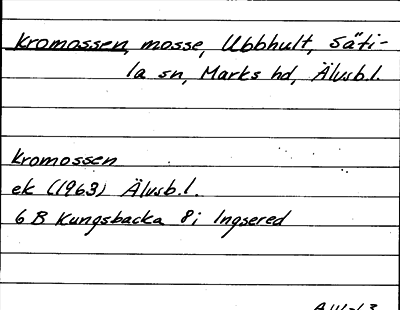 Kromossen, mosse, Ubbhult, Säti-
la sn, Marks hd, Älvsb.l.
Kromossen
ek (1963) Älvsb.l.
6 B Kungsbacka 8i Ingsered